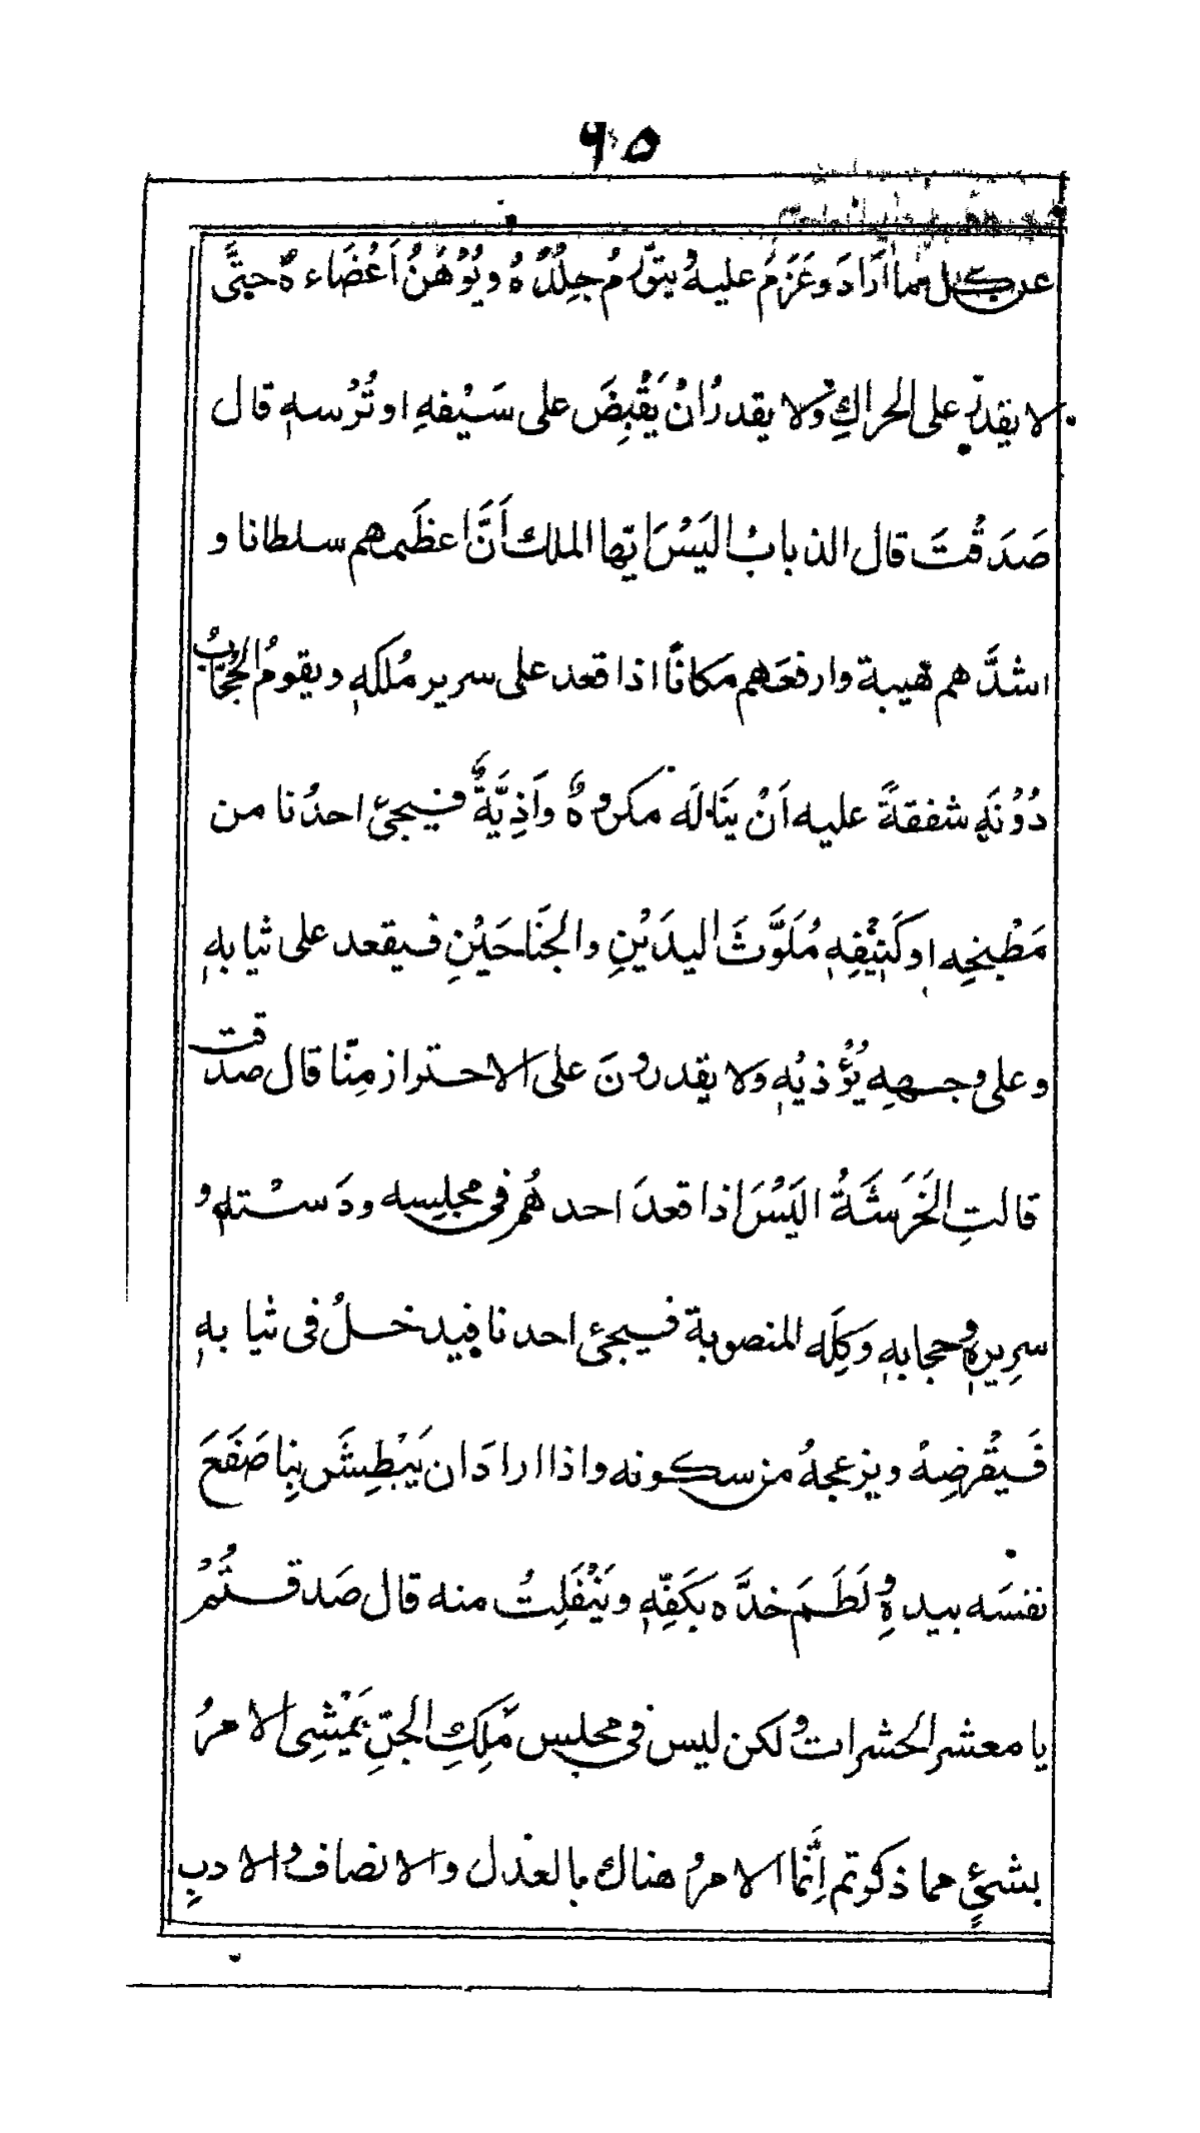 ٦٥
عن كل مما اَرَادَ وعَزَمَ عليهُ يتوّرمُ جِلدُهُ ويُوْهَنُ اَعْضَاءهٌ حتَّى
لا يقدر على الحراكِ ولا يقدرُ انْ يَقْبِضَ على سَيْفهِ او تُرْسهٖ قال
صَدَقْتَ قال الذبابُ اليَسْ اَيّها الملك اَنَّ اعظَمهم سلطانا و
اشدَّهم هيبة وارفعَهم مكانًا اذا قعد على سرير مُلكهٖ ويقومُ الحُجّابُ
دُوْنَهٖ شفقةً عليه اَنْ يَنَالَه مكروهٌ واَذِيَّةٌ فيجئ احدُنا من
مَطْبخِه او كَنِيْفِهٖ مُلَوَّثَ اليدَيْنِ والجَنَاحَيْنِ فيقعد على ثيابهٖ
وعلى وجهِهٖ يُؤْذيْهٖ ولا يقدرونَ على الاحتراز مِنّا قال صدقت
قالتِ الخَرَشَةُ اليَسْ اذا قعدَ احدهُم فى مجلِسِه ودَسْتهٖ و
سرِيرهٖ وحجابهٖ وكِلَّه المنصوبة فيجئ احدنا فيدخلُ فى ثيابهٖ
فَيقْرضِهُ ويزعجهُ من سكونه واذا ارادَ ان يَبْطِشَ بِنا صَفَعَ
نفسَه بيدهِ ولَطَمَ خدَّه بكَفِّهٖ ويَنْفَلِتُ منه قال صَدقتُمْ
يا معشر الحشرات ولكن ليس فى مجلس مَلِكِ الجنِّ يَمْشِى الامرُ
بشئٍ مما ذكرتم اِنَّما الامرُ هناك بالعدل والانصاف والادبِ